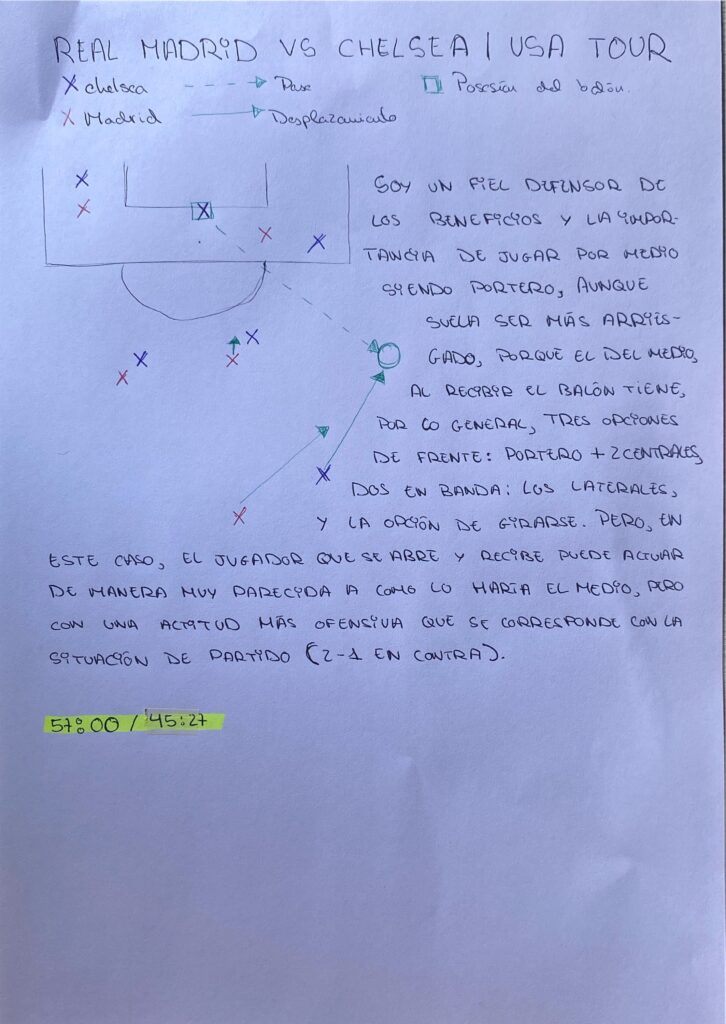 REAL MADRID VS CHELSEA | USA TOUR
X Chelsea Pase Posesión del balón.
X Madrid Desplazamiento
SOY UN FIEL DEFENSOR DE
LOS BENEFICIOS Y LA IMPOR-
TANCIA DE JUGAR POR MEDIO
SIENDO PORTERO, AUNQUE
SUELA SER MÁS ARRIES-
GADO, PORQUE EL DEL MEDIO,
AL RECIBIR EL BALÓN TIENE,
POR LO GENERAL, TRES OPCIONES
DE FRENTE: PORTERO + 2 CENTRALES,
DOS EN BANDA: LOS LATERALES,
Y LA OPCIÓN DE GIRARSE. PERO, EN
ESTE CASO, EL JUGADOR QUE SE ABRE Y RECIBE PUEDE ACTUAR
DE MANERA MUY PARECIDA A COMO LO HARÍA EL MEDIO, PERO
CON UNA ACTITUD MÁS OFENSIVA QUE SE CORRESPONDE CON LA
SITUACIÓN DE PARTIDO (2-1 EN CONTRA).
57:00 / 45:27